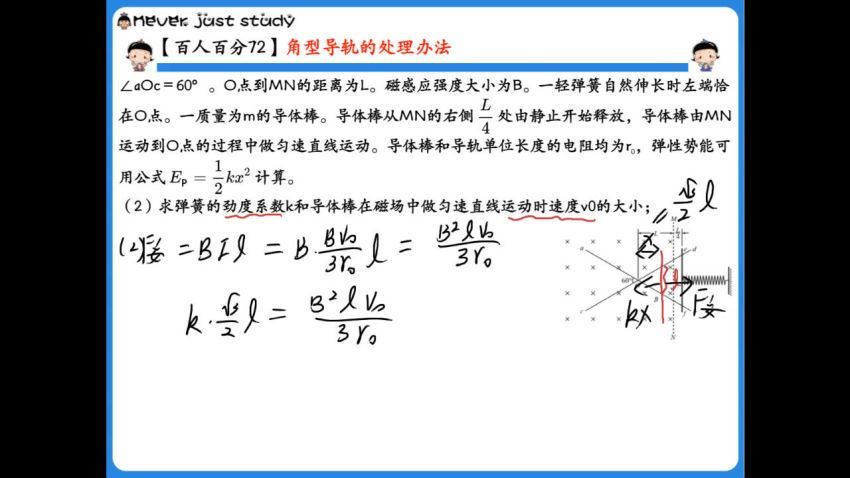 Never just study
【百人百分72】角型导轨的处理办法
∠aOc=60° 。O点到MN的距离为L。磁感应强度大小为B。一轻弹簧自然伸长时左端恰
在O点。一质量为m的导体棒。导体棒从MN的右侧 L/4 处由静止开始释放，导体棒由MN
运动到O点的过程中做匀速直线运动。导体棒和导轨单位长度的电阻均为r₀，弹性势能可
用公式 Eₚ = 1/2 kx² 计算。
（2）求弹簧的劲度系数k和导体棒在磁场中做匀速直线运动时速度v0的大小；
√3/2 l
(2) F安 = BIl = B·Bv₀/3r₀ l = B²lv₀/3r₀
k·√3/2 l = B²lv₀/3r₀
M
L
a
d
x
l
60°
B
c
kx
F安
N